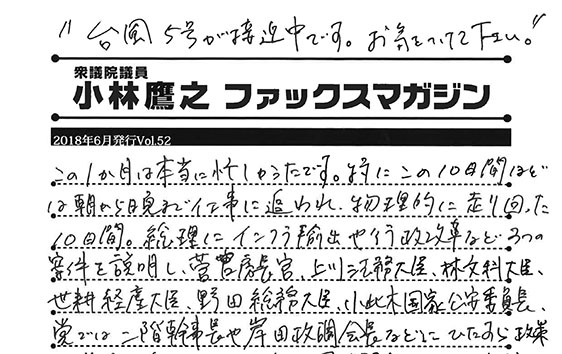 "台風5号が接近中です。お気をつけて下さい。"
衆議院議員
小林鷹之 ファックスマガジン
2018年6月発行Vol.52
この1か月は本当に忙しかったです。特にこの10日間ほど
は朝から晩まで仕事に追われ、物理的に走り回った
10日間。総理にインフラ輸出や行政改革など3つの
案件を説明し、菅官房長官、上川法務大臣、林文科大臣、
世耕経産大臣、野田総務大臣、小此木国家公安委員長、
党では二階幹事長や岸田政調会長などにひたすら政策